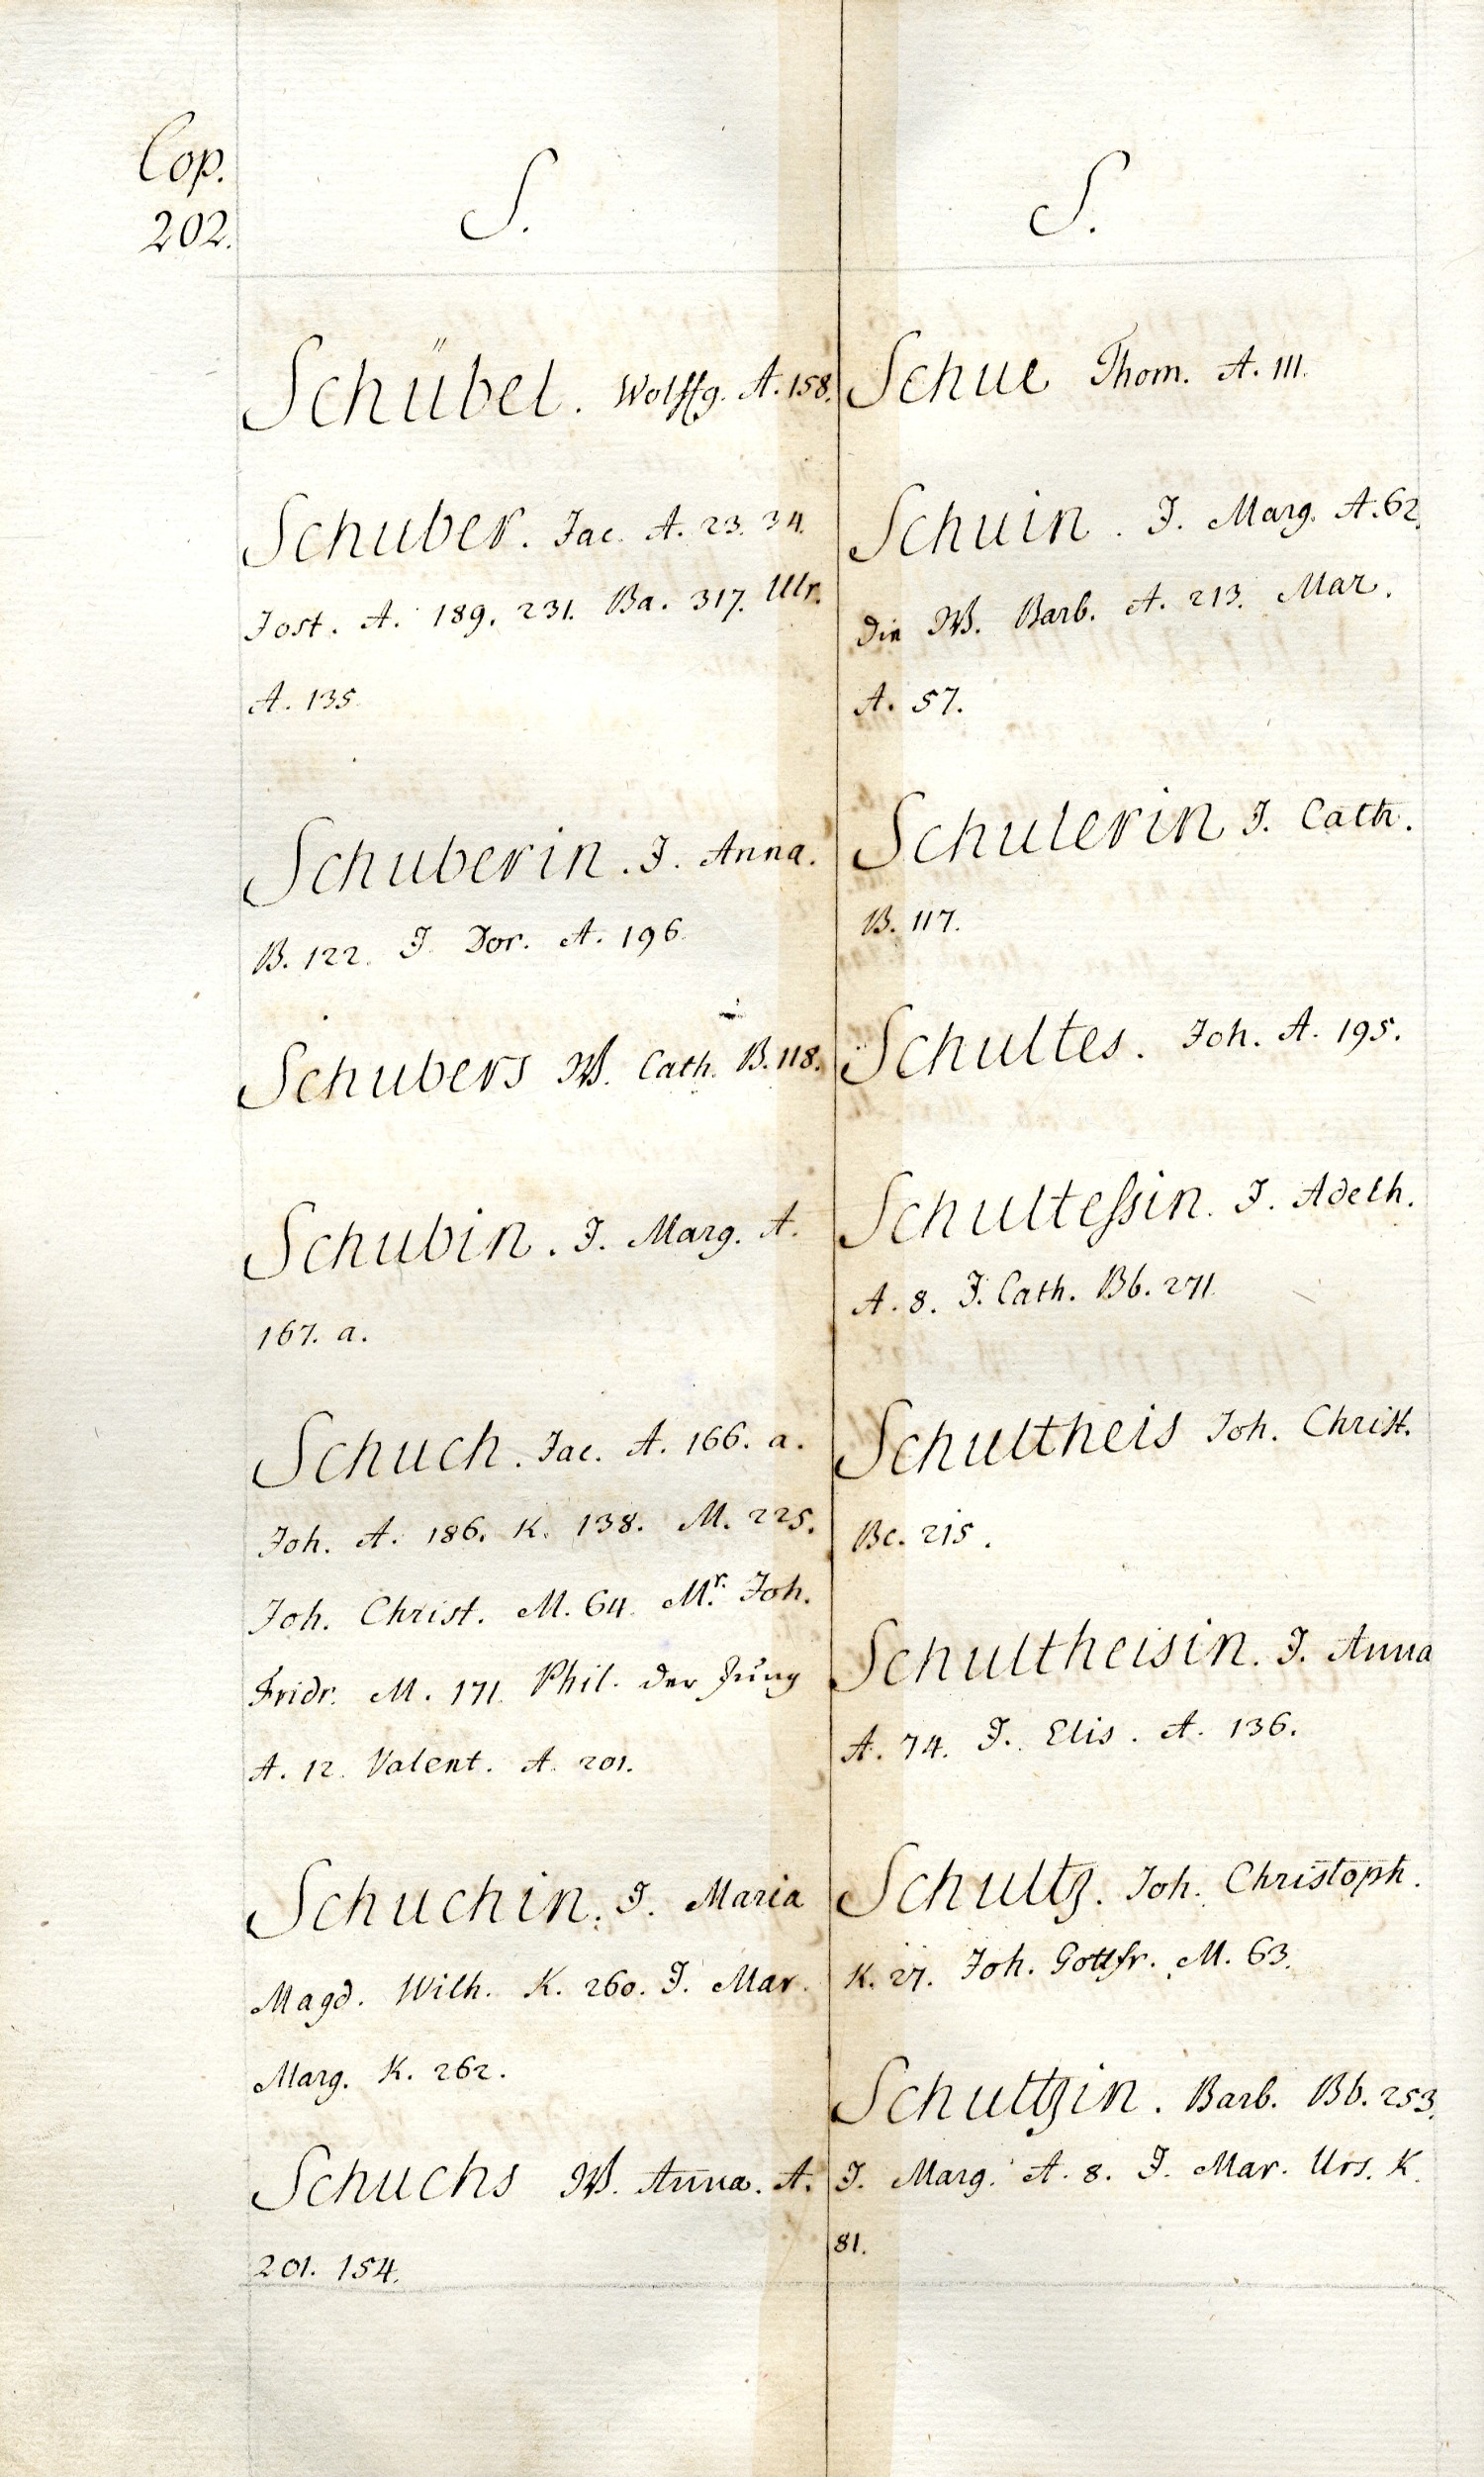 Cop.
202.
S.
Schübel. Wolffg. A. 158.
Schuber. Jac. A. 23. 34.
Jost. A. 189. 231. Ba. 317. Ulr.
A. 135.
Schuberin. J. Anna.
B. 122. J. Dor. A. 196.
Schubers W. Cath. B. 118.
Schubin. J. Marg. A.
167. a.
Schuch. Jac. A. 166. a.
Joh. A. 186. K. 138. M. 225.
Joh. Christ. M. 64. Mr. Joh.
Fridr. M. 171. Phil. der Jung
A. 12. Valent. A. 201.
Schuchin. J. Maria
Magd. Wilh. K. 260. J. Mar.
Marg. K. 262.
Schuchs W. Anna. A.
201. 154.
S.
Schue Thom. A. 111.
Schuin. J. Marg. A. 62.
die W. Barb. A. 213. Mar.
A. 57.
Schulerin J. Cath.
B. 117.
Schultes. Joh. A. 195.
Schulteſsin. J. Adelh.
A. 8. J. Cath. Bb. 271.
Schultheis Joh. Christ.
Bc. 215.
Schultheisin. J. Anna
A. 74. J. Elis. A. 136.
Schultz. Joh. Christoph.
K. 27. Joh. Gottfr. M. 63.
Schultzin. Barb. Bb. 253.
J. Marg. A. 8. J. Mar. Urs. K.
81.